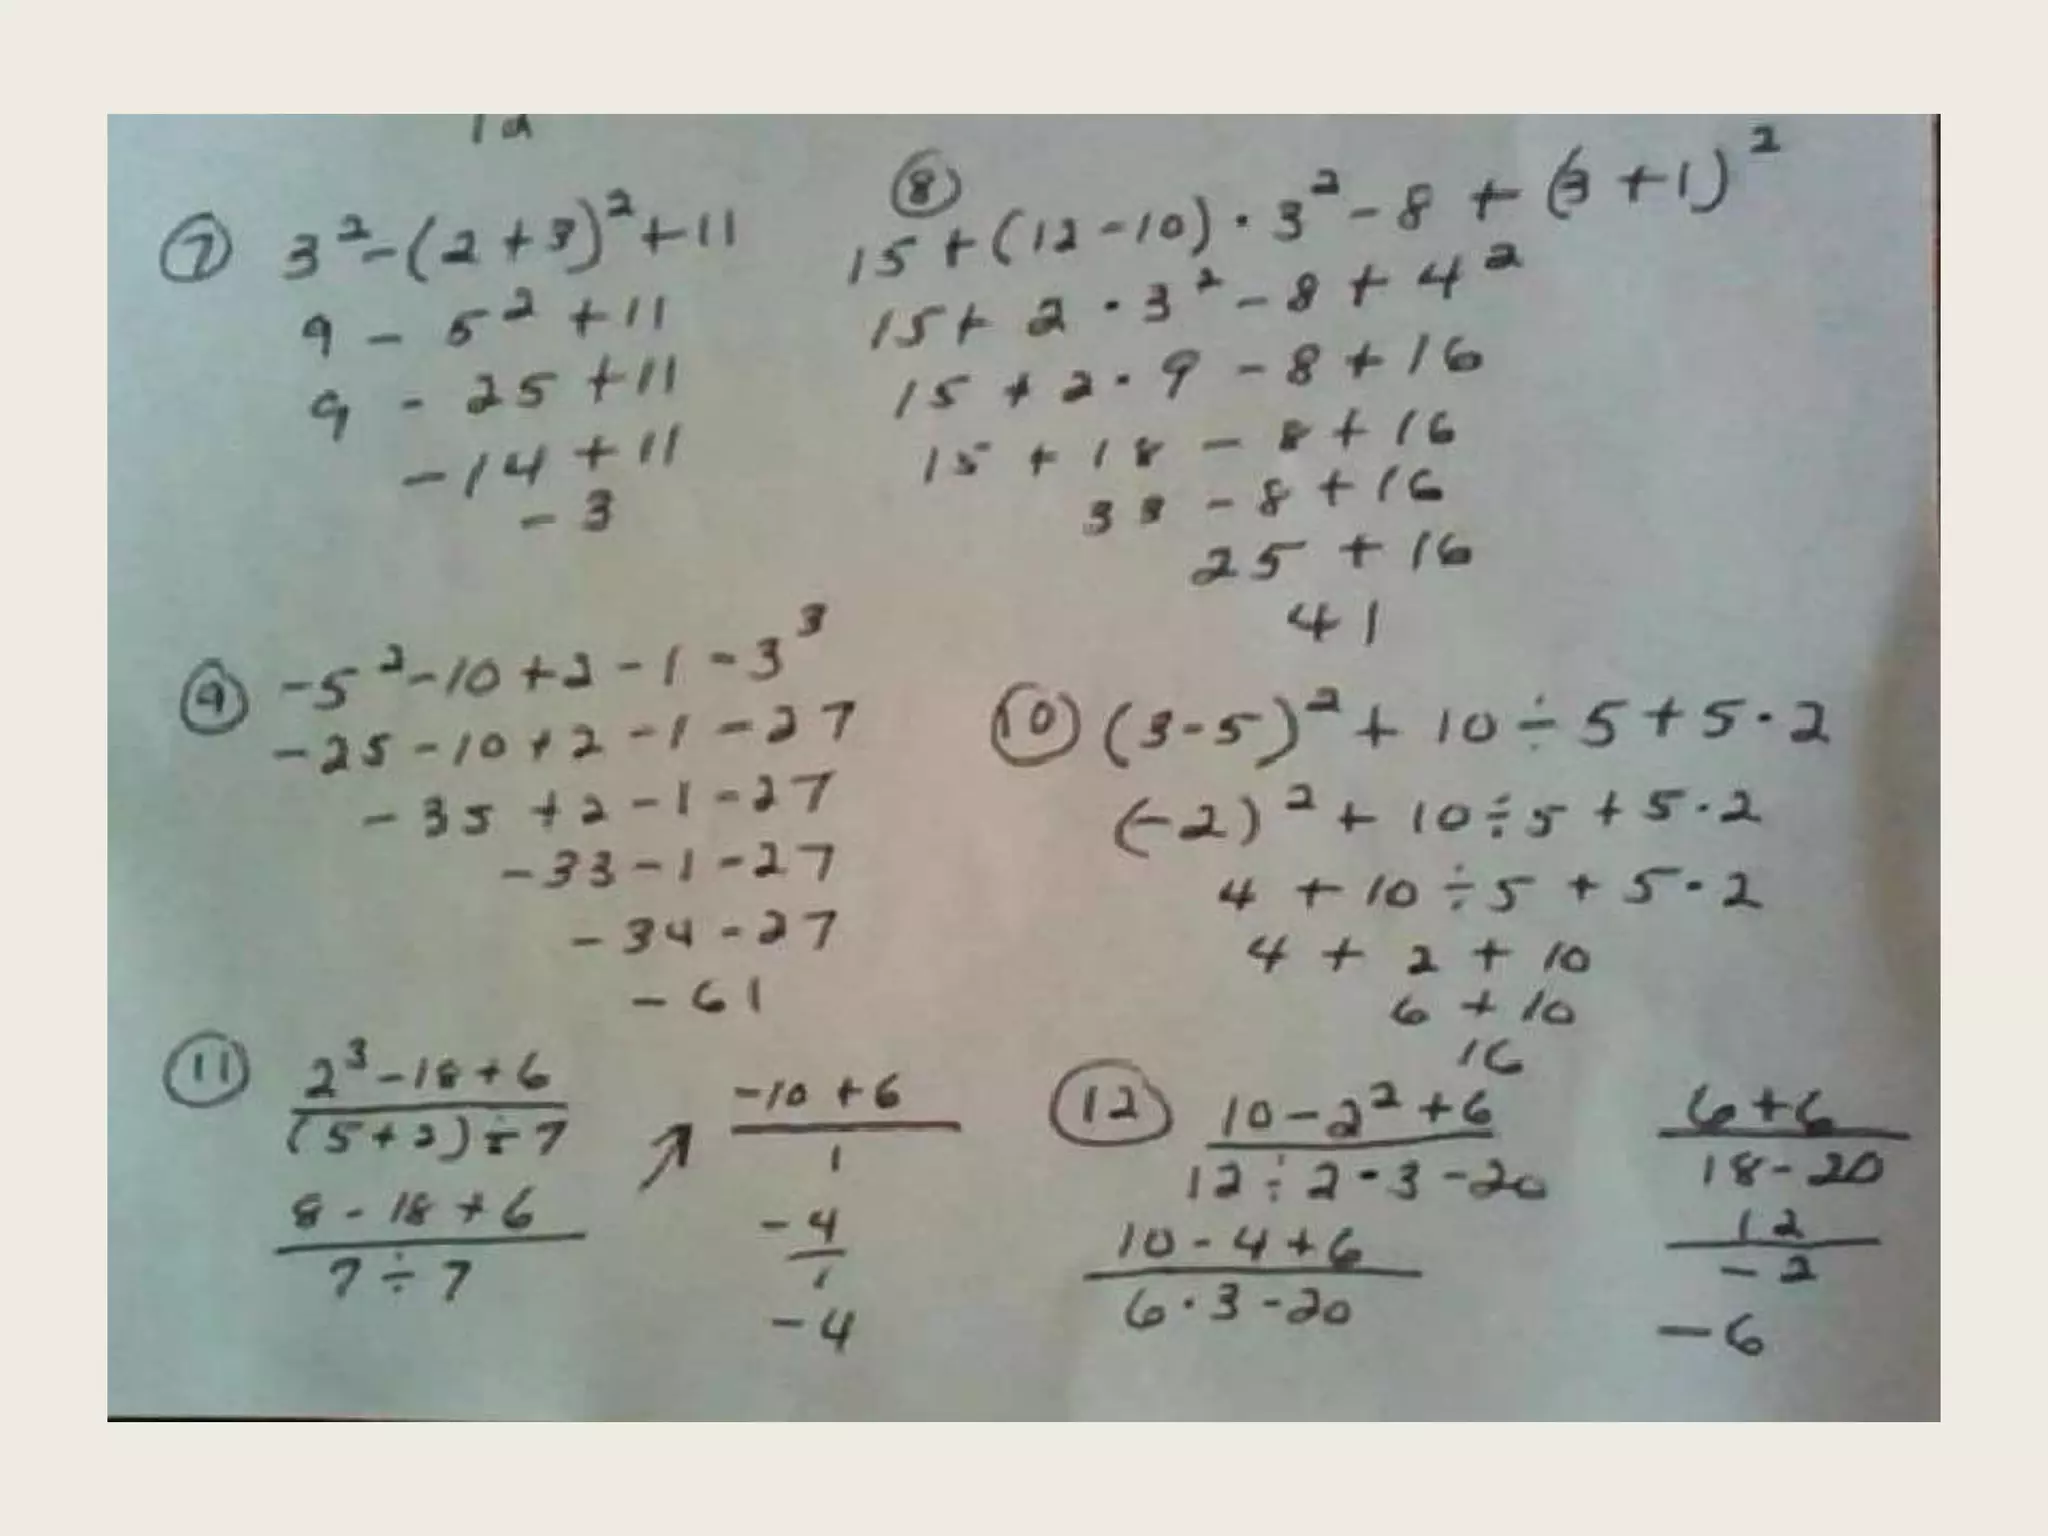 ⑦ 3² - (2 + 3)² + 11
9 - 5² + 11
9 - 25 + 11
- 14 + 11
- 3
⑧
15 + (12 - 10) · 3² - 8 + (3 + 1)²
15 + 2 · 3² - 8 + 4²
15 + 2 · 9 - 8 + 16
15 + 18 - 8 + 16
33 - 8 + 16
25 + 16
41
⑨ -5² - 10 + 2 - 1 - 3³
-25 - 10 + 2 - 1 - 27
- 35 + 2 - 1 - 27
- 33 - 1 - 27
- 34 - 27
- 61
⑩ (3 - 5)² + 10 ÷ 5 + 5 · 2
(-2)² + 10 ÷ 5 + 5 · 2
4 + 10 ÷ 5 + 5 · 2
4 + 2 + 10
6 + 10
16
⑪ 2³ - 18 + 6
(5 + 2) ÷ 7
8 - 18 + 6
7 ÷ 7
-10 + 6
1
- 4
1
- 4
⑫ 10 - 2² + 6
12 ÷ 2 · 3 - 20
10 - 4 + 6
6 · 3 - 20
6 + 6
18 - 20
12
- 2
- 6